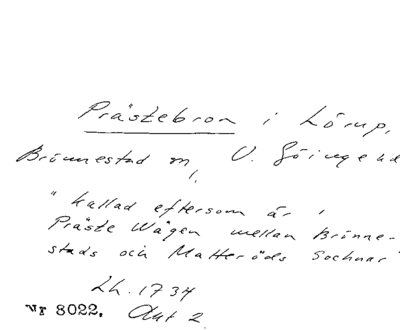 Prästebron i Lörup,
Brönnestad sn, V. Göinge hd
"kallad eftersom är i
Präste Wägen mellan Brönne-
stads och Matteröds Sochnar"
Lh. 1734
Nr 8022. Akt 2.